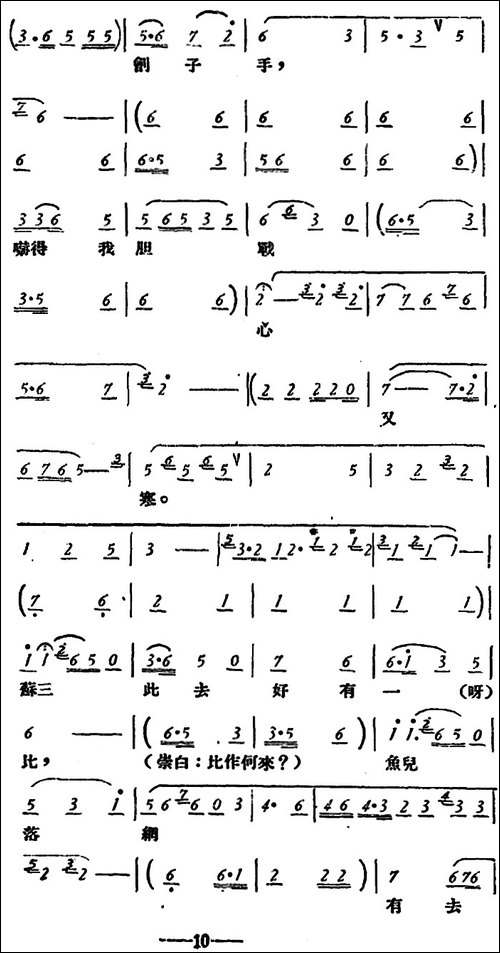 (3·6 5 5 5) | 5·6 7 2 | 6 3 | 5·3 V 5 |
劊子手，
7 6 —— | (6 6 | 6 6 | 6 6 |
6 6 | 6·5 3 | 5 6 6 | 6 6) |
3 3 6 5 | 5 6 5 3 5 | 6 6 3 0 | (6·5 3 |
嚇得我胆戰
3·5 6 | 6 6) | 2 — 3 2 3 2 | 7 7 6 7 6 |
心
5·6 7 | 3 2 —— | (2 2 2 2 0 | 7 — 7·2 |
又
6 7 6 5 5 — 3 | 5 6 5 6 5 V | 2 5 | 3 2 3 2 |
寒。
1 2 5 | 3 —— | 5 3·2 1 2· 1 2 1 2 | 3 1 2 1 1 — |
(7 6 | 2 1 | 1 1 | 1 1) |
1 1 2 6 5 0 | 3·6 5 0 | 7 6 | 6·1 3 5 |
蘇三此去好有一(呀)
6 —— | (6·5 3 | 3·5 6) | 1 1· 2 6 5 0 |
比，(崇白：比作何來？)魚兒
5 3 1 | 5 6 7 6 0 3 | 4· 6 | 4 6 4·3 2 3 4 3 3 |
落網
5 2 3 2 — | (6 6·1 | 2 2 2) | 7 6 7 6 |
有去
——10——